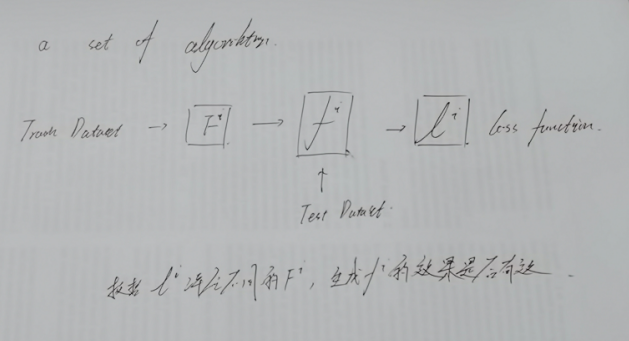 a set of algorithms.
Train Dataset → F^i → f^i → l^i loss function.
↑
Test Dataset.
l^i 不同的 F^i, 生成 f^i 的效果是否有效.